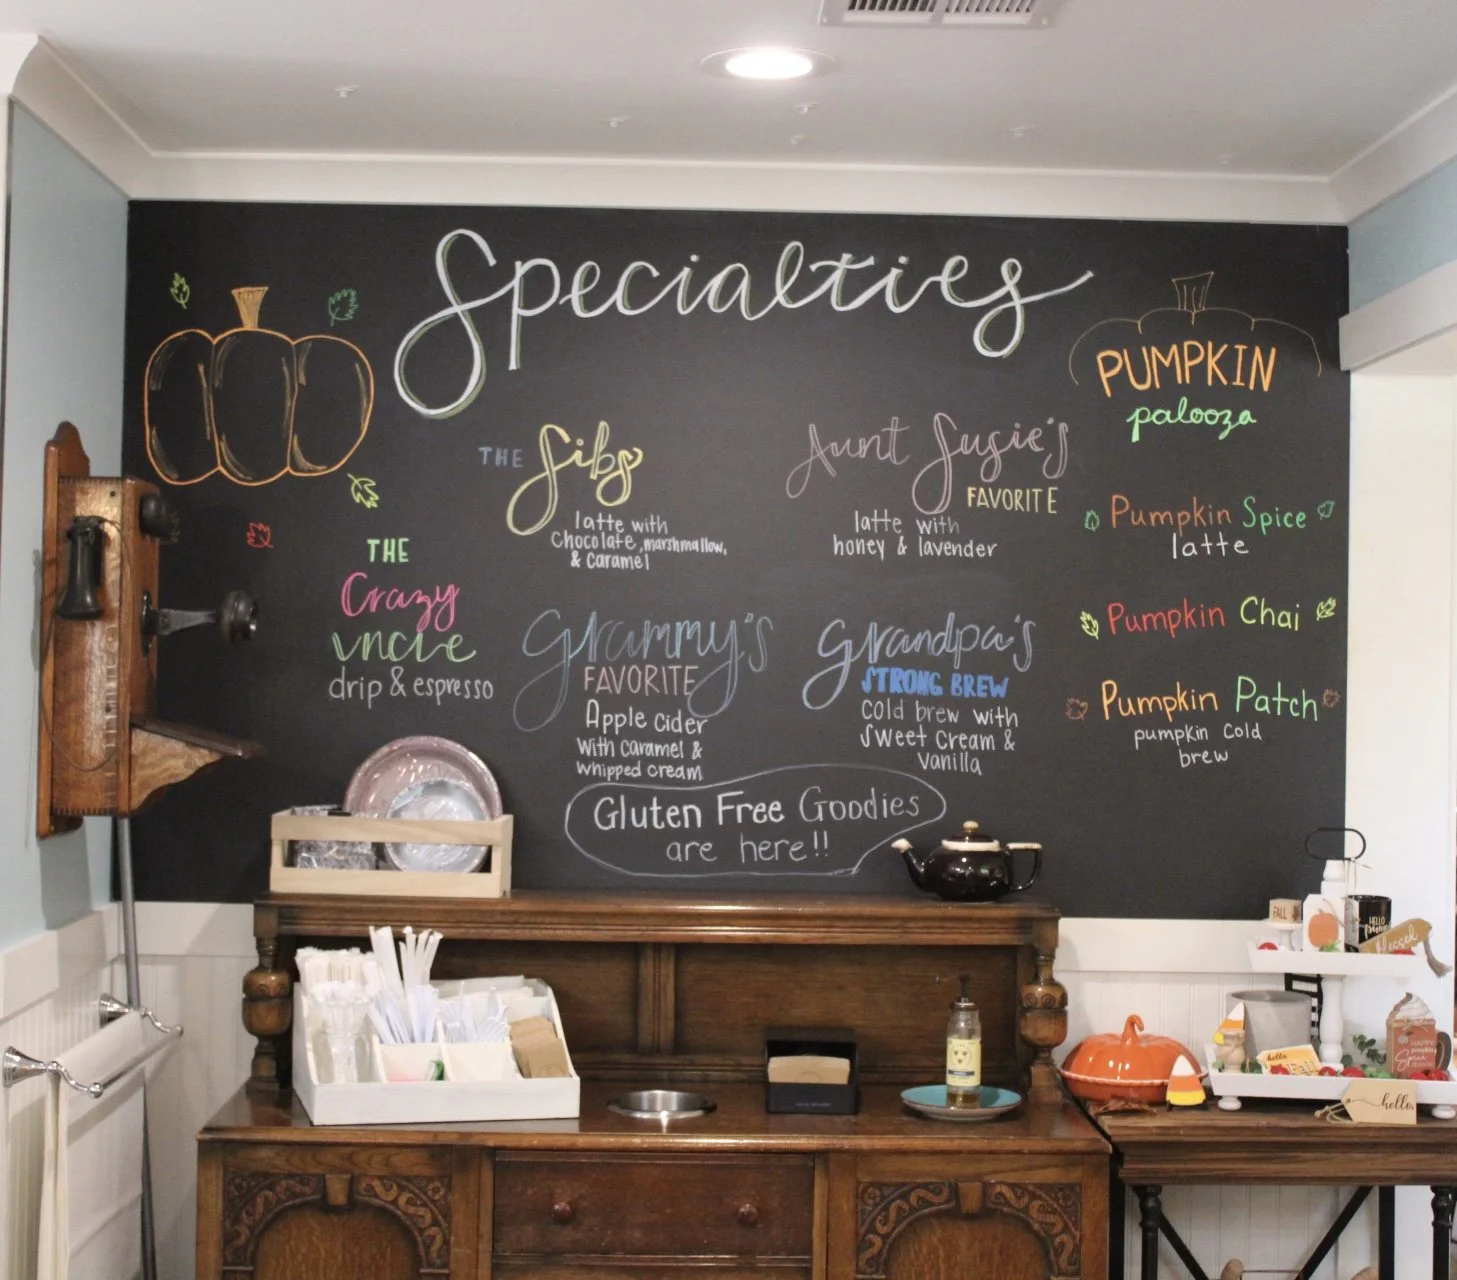 Specialties
THE Sibs
latte with
Chocolate, marshmallow,
& Caramel
Aunt Susie's
FAVORITE
latte with
honey & lavender
THE
Crazy
uncle
drip & espresso
Grammy's
FAVORITE
Apple cider
with caramel &
whipped cream
Grandpa's
STRONG BREW
Cold brew with
Sweet Cream &
Vanilla
Gluten Free Goodies
are here!!
PUMPKIN
palooza
Pumpkin Spice
latte
Pumpkin Chai
Pumpkin Patch
pumpkin cold
brew
FALL
HELLO
Blessed
hello
Fall
HAPPY
pumpkin
Spice
hello.